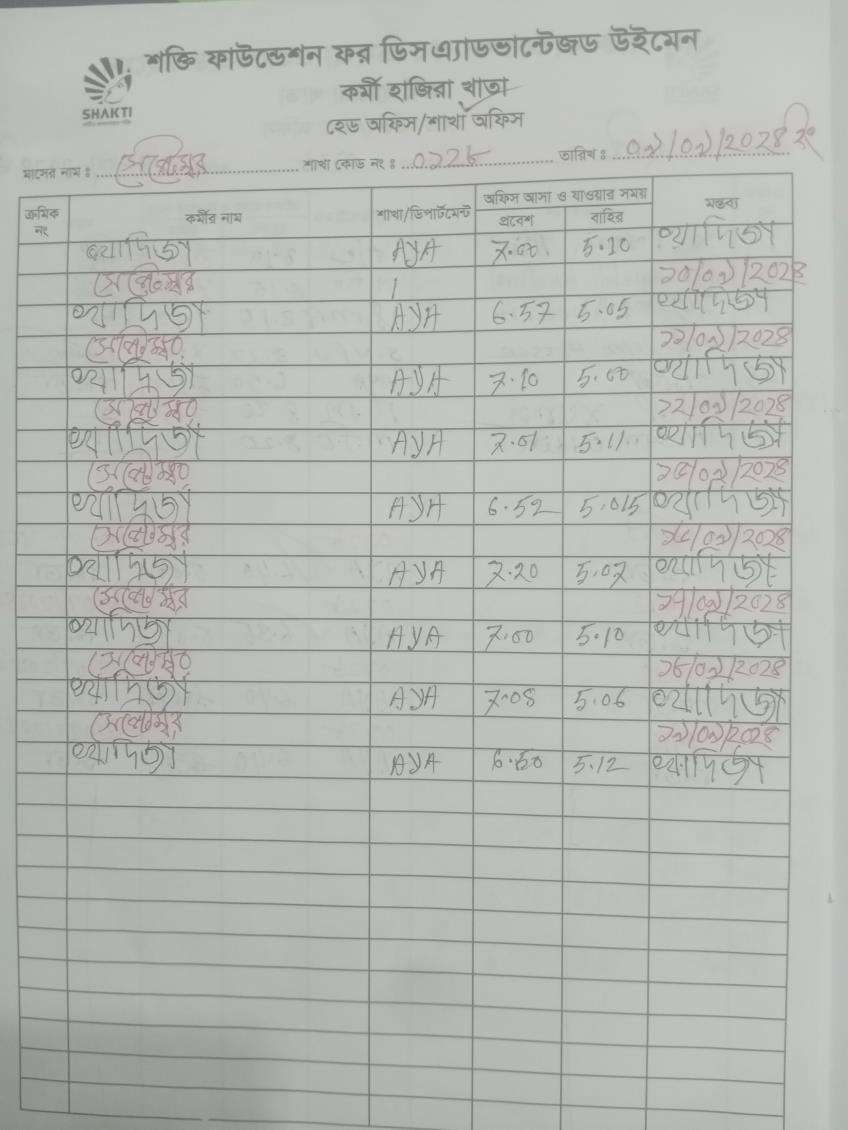 শক্তি ফাউন্ডেশন ফর ডিসএ্যাডভান্টেজড উইমেন
কর্মী হাজিরা খাতা
SHAKTI
হেড অফিস/শাখা অফিস
মাসের নাম : সেপ্টেম্বর শাখা কোড নং : তারিখ : ০৯/০৯/২০২৪ ইং
ক্রমিক নং কর্মীর নাম শাখা/ডিপার্টমেন্ট অফিস আসা ও যাওয়ার সময় মন্তব্য
প্রবেশ বাহির
খাদিজা AYA 7.00 5.10 খাদিজা
সেপ্টেম্বর ১০/০৯/২০২৪
খাদিজা AYA 6.57 5.05 খাদিজা
সেপ্টেম্বর ১১/০৯/২০২৪
খাদিজা AYA 7.10 5.00 খাদিজা
সেপ্টেম্বর ১২/০৯/২০২৪
খাদিজা AYA 7.01 5.11 খাদিজা
সেপ্টেম্বর ১৫/০৯/২০২৪
খাদিজা AYA 6.52 5.015 খাদিজা
সেপ্টেম্বর /০৯/২০২৪
খাদিজা AYA 7.20 5.07 খাদিজা
সেপ্টেম্বর ১৭/০৯/২০২৪
খাদিজা AYA 7.00 5.10 খাদিজা
সেপ্টেম্বর ১৮/০৯/২০২৪
খাদিজা AYA 7.08 5.06 খাদিজা
সেপ্টেম্বর ১৯/০৯/২০২৪
খাদিজা AYA 6.50 5.12 খাদিজা